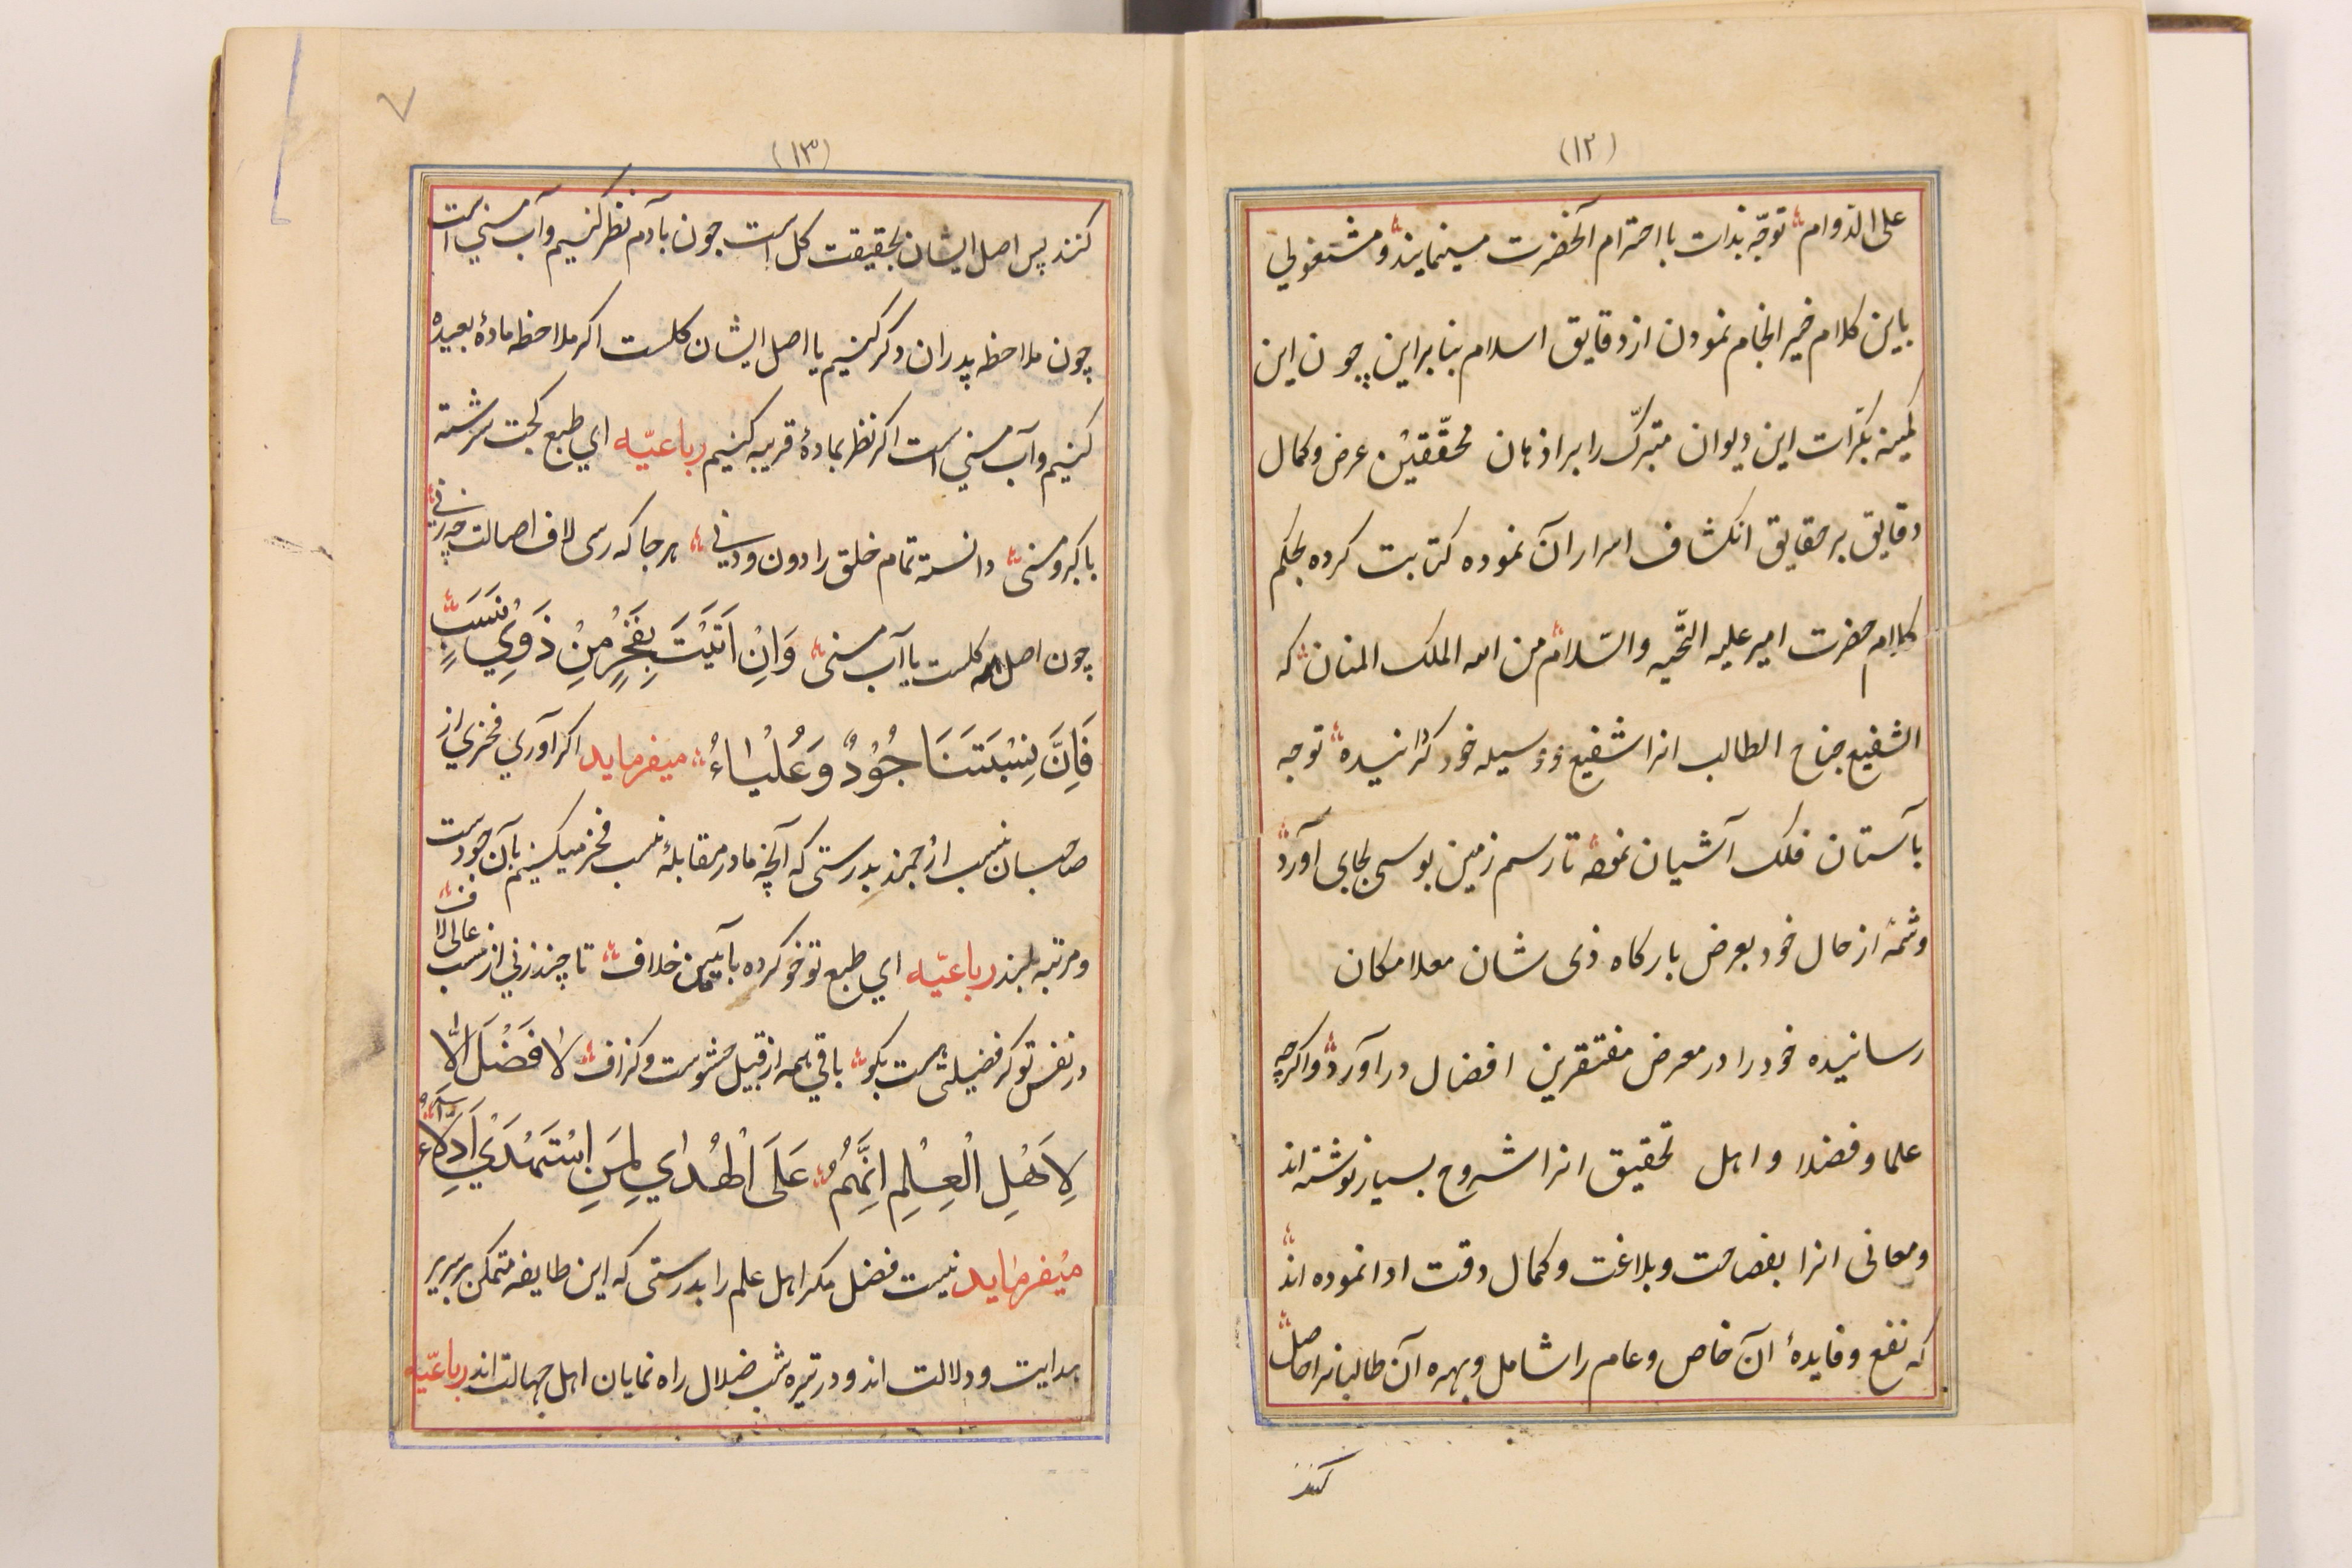 (١٢)
علی الدوام توجّه بذات بااحترام آنحضرت مینمایند و مشغولی
باین کلام خیر انجام نمودن از دقایق اسلام بنابراین چون این
کمینه بکرّات این دیوان متبرّک را بر اذهان محقّقین عرض و کمال
دقایق بر حقایق انکشاف اسرار آن نموده کتابت کرده بحکم
کلام حضرت امیر علیه التّحیه والسّلام من الله الملک المنان که
الشفیع جناح الطالب انرا شفیع و وسیله خود کردانیده توجه
بآستان فلک آشیان نموده تا رسم زمین بوسی بجای آورد
و شمهٔ از حال خود بعرض بارکاه ذی شان معلا مکان
رسانیده خود را در معرض مفتقرین افضال در آورد و اکرچه
علما و فضلا و اهل تحقیق انرا شروح بسیار نوشته اند
و معانی انرا بفصاحت و بلاغت و کمال دقت ادا نموده اند
که نفع و فایدهٔ آن خاص و عام را شامل و بهره آن طالبانرا حاصل
کنند
٧
(١٣)
کنند پس اصل ایشان بحقیقت کل است چون بآدم نظر کنیم و آب منی است
چون ملاحظه پدران دکر کنیم یا اصل ایشان کلست اکر ملاحظه مادهٔ بعیده
کنیم و آب منی است اکر نظر بمادهٔ قریبه کنیم رباعیّه ای طبع کجت سرشته
با کبر و منی دانسته تمام خلق را دون و دنی هرجا که رسی لاف اصالت چه زنی
چون اصل کلست یا آب منی وَاِنْ اَتَیْتَ بِفَخْرٍ مِنْ ذَوِي نَسَبٍ
فَاِنَّ نِسْبَتَنَا جُوْدٌ وَعُلْیَاءُ میفرماید اکر آوری فخری از
صاحبان نسب ارجمند بدرستی که آنچه ما در مقابلهٔ نسب فخر میکنیم بآن جودست
و مرتبه بلند رباعیّه ای طبع تو خو کرده بآیین خلاف تا چند زنی از نسب عالی لاف
در نفس تو کر فضیلتی هست بکو باقی همه از قبیل حشوست و کزاف لَا فَضْلَ اِلَّا
لِاَهْلِ الْعِلْمِ اِنَّهُمُ عَلَی الْهُدٰي لِمَنِ اسْتَهْدٰي اَدِلَّاءُ
میفرماید نیست فضل مکر اهل علم را بدرستی که این طایفه متمکن بر سریر
هدایت و دلالت اند و در تیره شب ضلال راه نمایان اهل جهالت اند رباعیّه